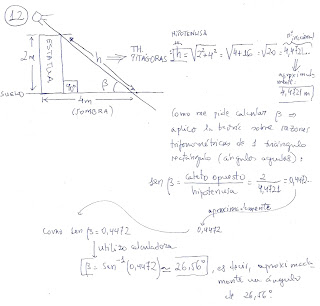 12
2m
ESTATUA
h
SUELO
90°
β
4m
(SOMBRA)
TH. PITÁGORAS
HIPOTENUSA
h = √2²+4² = √4+16 = √20 =
4,4721m
Como me pide calcular β ⇒
aplico la teoría sobre razones
trigonométricas de 1 triángulo
rectángulo (ángulos agudos):
sen β = cateto opuesto / hipotenusa = 2 / 4,4721 = 0,4472
aproximadamente
0,4472
Como sen β = 0,4472
utilizo calculadora
β = sen⁻¹(0,4472) ≈ 26,56°, es decir, aproximada
mente un ángulo
de 26,56°